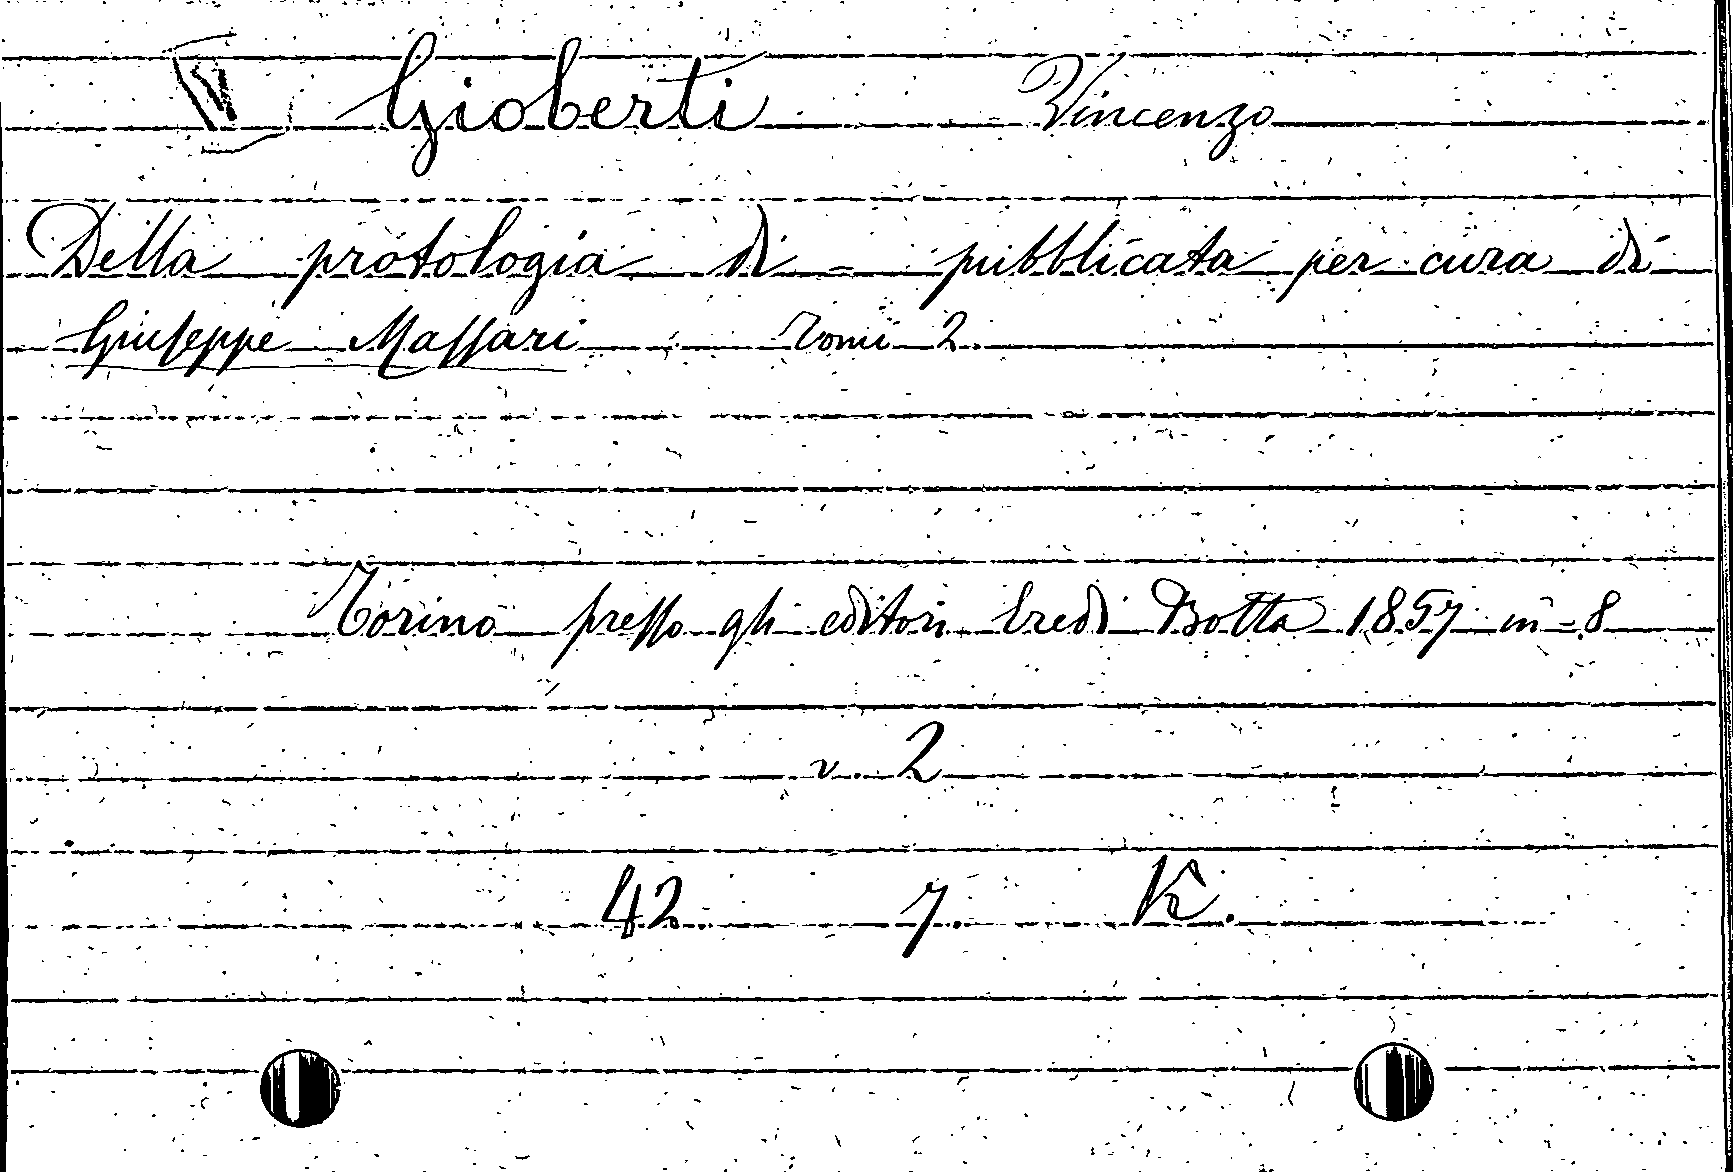 Gioberti Vincenzo
Della protologia di - pubblicata per cura di
Giuseppe Massari Tomi 2.
Torino presso gli editori Eredi Botta 1857 in-8
v. 2
42. 7. K.